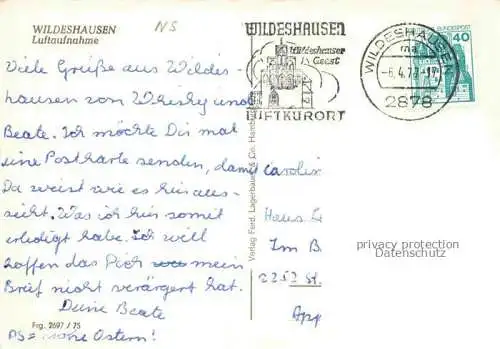 WILDESHAUSEN
Luftaufnahme
NS
Viele Grüße aus Wildes-
hausen von Whisky und
Beate. Ich möchte Dir mal
eine Postkarte senden, damit
Du weist wie es hier aus-
sieht. Was ich hier somit
erledigt habe. Ich will
hoffen das Dich mein
Brief nicht verärgert hat.
Deine Beate
PS = Frohe Ostern!
Frg. 2697 / 75
Verlag Ferd. Lagerbauer & Co. Hamb
WILDESHAUSEN
Wildeshauser
Geest
LUFTKURORT
WILDESHAUSEN
-6.4.77-17
2878
DEUTSCHE BUNDESPOST
40
Carolin
Haus
Im B
2252 St.
App
privacy protection
Datenschutz